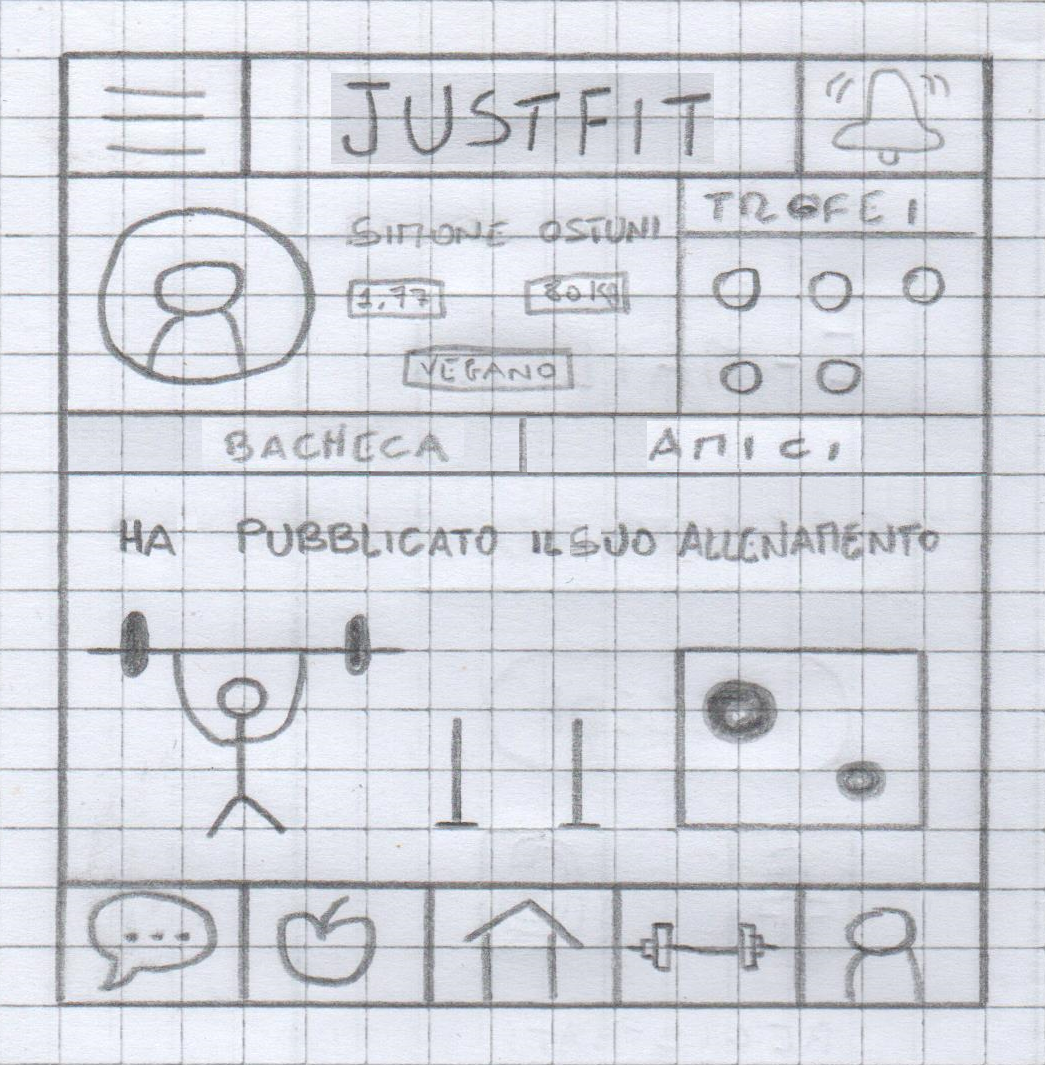 JUSTFIT
SIMONE OSTUNI
TROFEI
1,77 80KG
VEGANO
BACHECA AMICI
HA PUBBLICATO IL SUO ALLENAMENTO